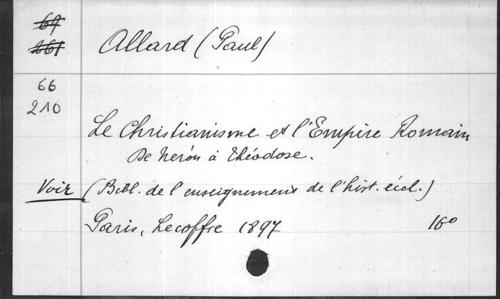 69
261
Allard (Paul)
66
210
Le Christianisme et l'Empire Romain
De Néron à Théodose.
Voir (Bibl. de l'enseignement de l'hist. éccl.)
Paris, Lecoffre 1897 16º